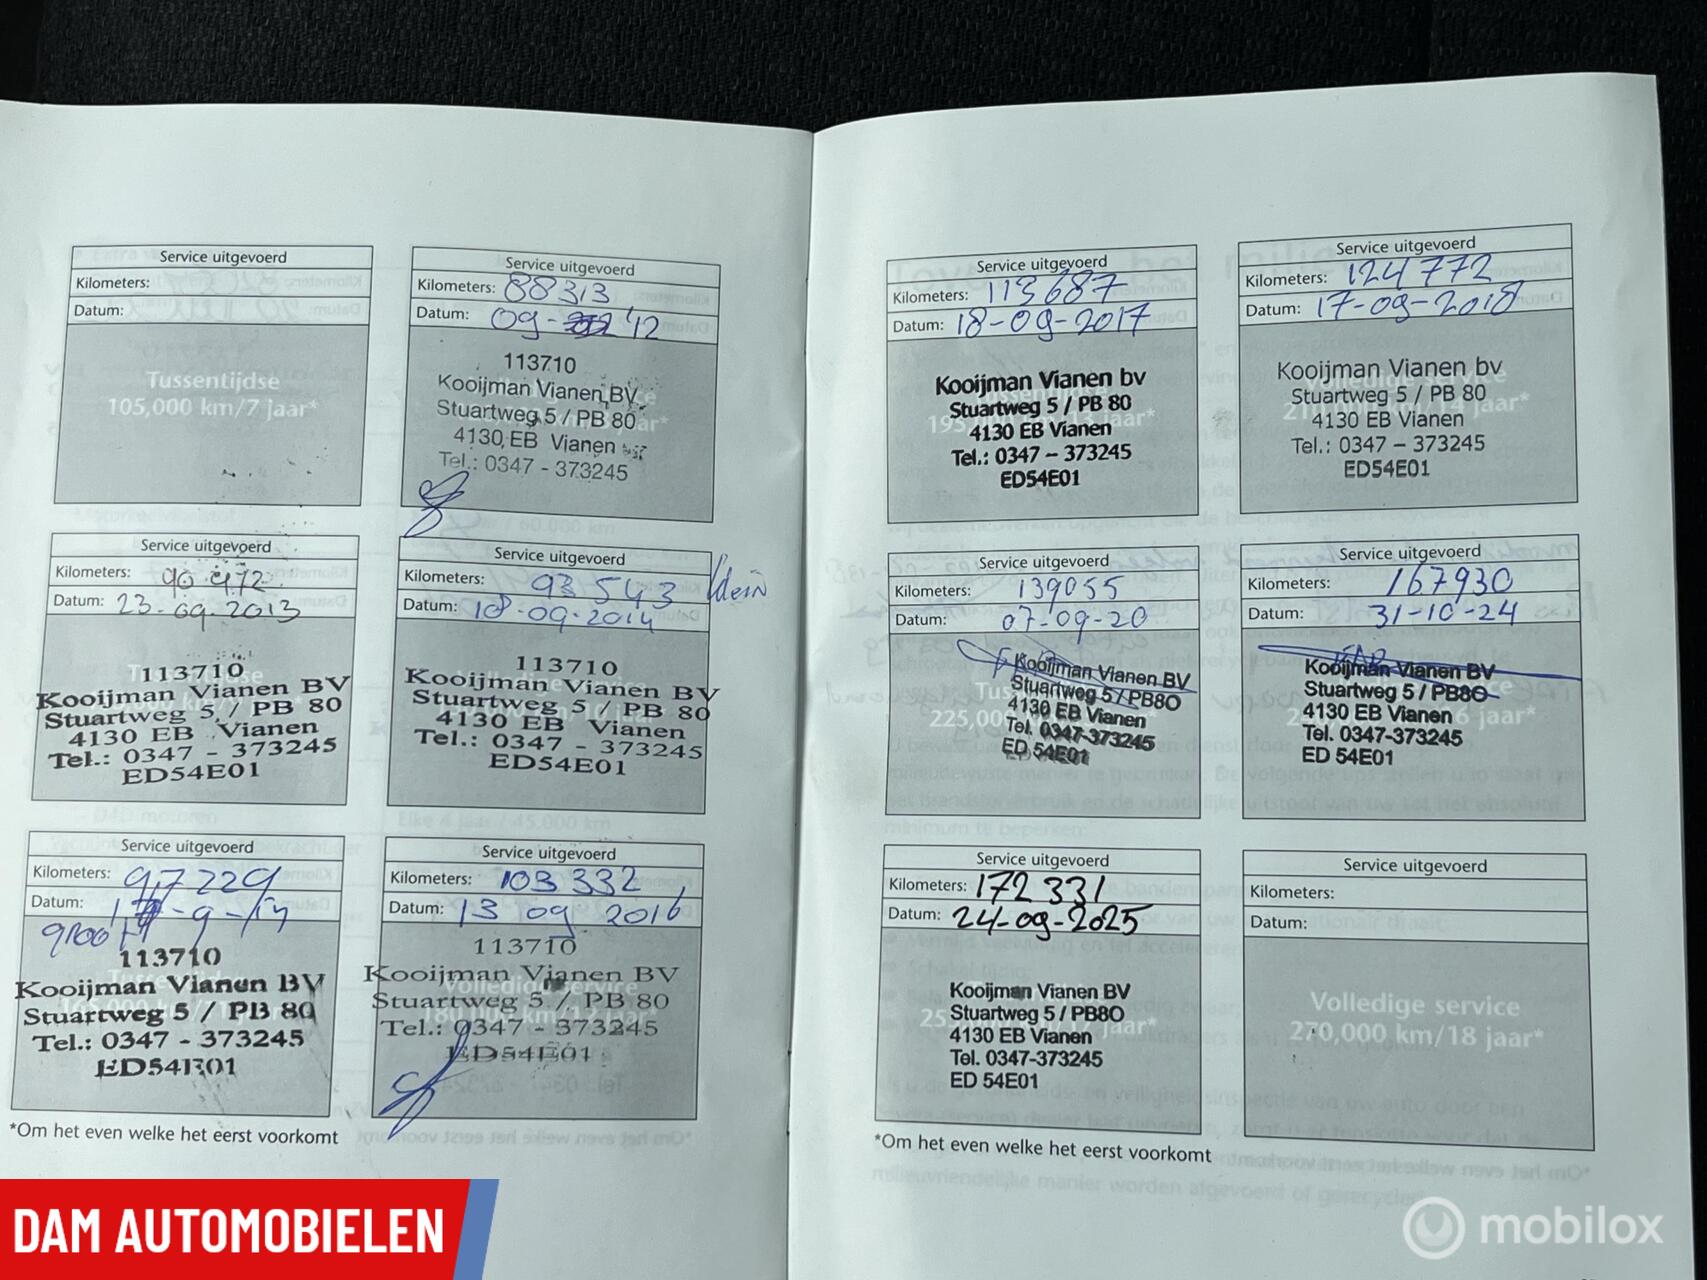 Service uitgevoerd
Kilometers:
Datum:
Tussentijdse
105,000 km/7 jaar*
Service uitgevoerd
Kilometers: 88313
Datum: 09- '12
113710
Kooijman Vianen BV
Stuartweg 5 / PB 80
4130 EB Vianen
Tel.: 0347 - 373245
Service uitgevoerd
Kilometers: 90.472
Datum: 23-09-2013
113710
Kooijman Vianen BV
Stuartweg 5 / PB 80
4130 EB Vianen
Tel.: 0347 - 373245
ED54E01
Service uitgevoerd
Kilometers: 93543 klein
Datum: 18-09-2014
113710
Kooijman Vianen BV
Stuartweg 5 / PB 80
4130 EB Vianen
Tel.: 0347 - 373245
ED54E01
Service uitgevoerd
Kilometers: 97229
Datum:
groot
113710
Kooijman Vianen BV
Stuartweg 5 / PB 80
Tel.: 0347 - 373245
ED54E01
Service uitgevoerd
Kilometers: 103332
Datum: 13 09 2016
113710
Kooijman Vianen BV
Stuartweg 5 / PB 80
Tel.: 0347 - 373245
ED54E01
*Om het even welke het eerst voorkomt
Service uitgevoerd
Kilometers: 113687
Datum: 18-09-2017
Kooijman Vianen bv
Stuartweg 5 / PB 80
4130 EB Vianen
Tel.: 0347 – 373245
ED54E01
Service uitgevoerd
Kilometers: 124772
Datum: 17-09-2018
Kooijman Vianen bv
Stuartweg 5 / PB 80
4130 EB Vianen
Tel.: 0347 – 373245
ED54E01
Service uitgevoerd
Kilometers: 139055
Datum: 07-09-20
Kooijman Vianen BV
Stuartweg 5 / PB80
4130 EB Vianen
Tel. 0347-373245
ED 54E01
Service uitgevoerd
Kilometers: 167930
Datum: 31-10-24
Kooijman Vianen BV
Stuartweg 5 / PB80
4130 EB Vianen
Tel. 0347-373245
ED 54E01
Service uitgevoerd
Kilometers: 172331
Datum: 24-09-2025
Kooijman Vianen BV
Stuartweg 5 / PB80
4130 EB Vianen
Tel. 0347-373245
ED 54E01
Service uitgevoerd
Kilometers:
Datum:
Volledige service
270,000 km/18 jaar*
*Om het even welke het eerst voorkomt
DAM AUTOMOBIELEN
mobilox